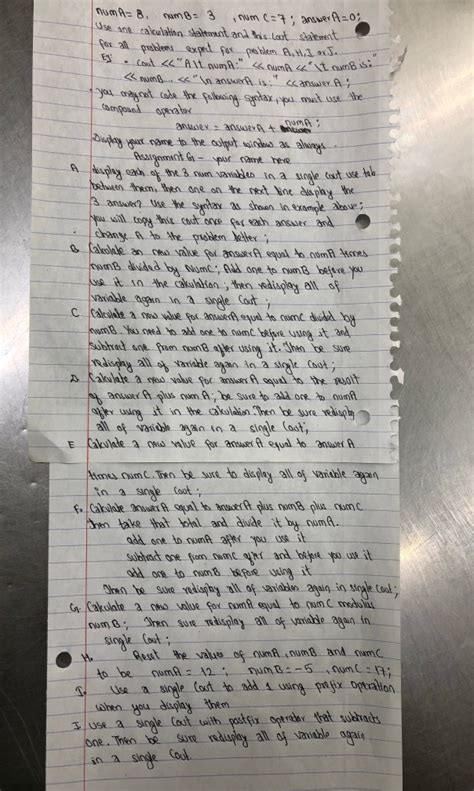 numA = 8, numB = 3 , num C = 7 ; answerA = 0;
Use one calculation statement and this cout statement
for all problems expect for problem A, H, I or J.
EJ • cout << "A \t numA:" << numA << "\t numB is:"
<< numB... << "\n answerA is:" << answerA ;
• you may not code the following syntax, you must use the
compound operator
answer = answerA + numA ;
Display your name to the output window as always
Assignment G - your name here
A. display each of the 3 num variables in a single cout use tab
between them, then one on the next line display the
3 answers. Use the syntax as shown in example above;
you will copy this cout once for each answer and
change A to the problem letter ;
B. Calculate an new value for answerA equal to numA times
numB divided by NumC; Add one to numB before you
use it in the calculation ; then redisplay all of
variable again in a single Cout ;
C Calculate a new value for answerA equal to numC divided by
numB. You need to add one to numC before using it and
subtract one from numB after using it. Then be sure
redisplay all of variable again in a single Cout;
D. Calculate a new value for answerA equal to the result
of answer A plus num A ; be sure to add one to numA
after using it in the calculation. Then be sure redisplay
all of variable again in a single Cout;
E Calculate a new value for answerA equal to answer A
times numC. Then be sure to display all of variable again
in a single Cout ;
F. Calculate answerA equal to answerA plus numB plus numC
Then take that total and divide it by numA.
add one to numA after you use it
subtract one from numC after and before you use it
add one to numB before using it
Then be sure redisplay all of variables again in single Cout;
G. Calculate a new value for numA equal to num C modulus
num B ; Then sure redisplay all of variable again in
single Cout ;
H. Reset the values of numA, numB and numC
to be numA = 12 ; numB = -5 , numC = 17;
I. Use a single Cout to add 1 using prefix operation
when you display them
J. Use a single Cout with postfix operator that subtracts
one. Then be sure redisplay all of variable again
in a single Cout.